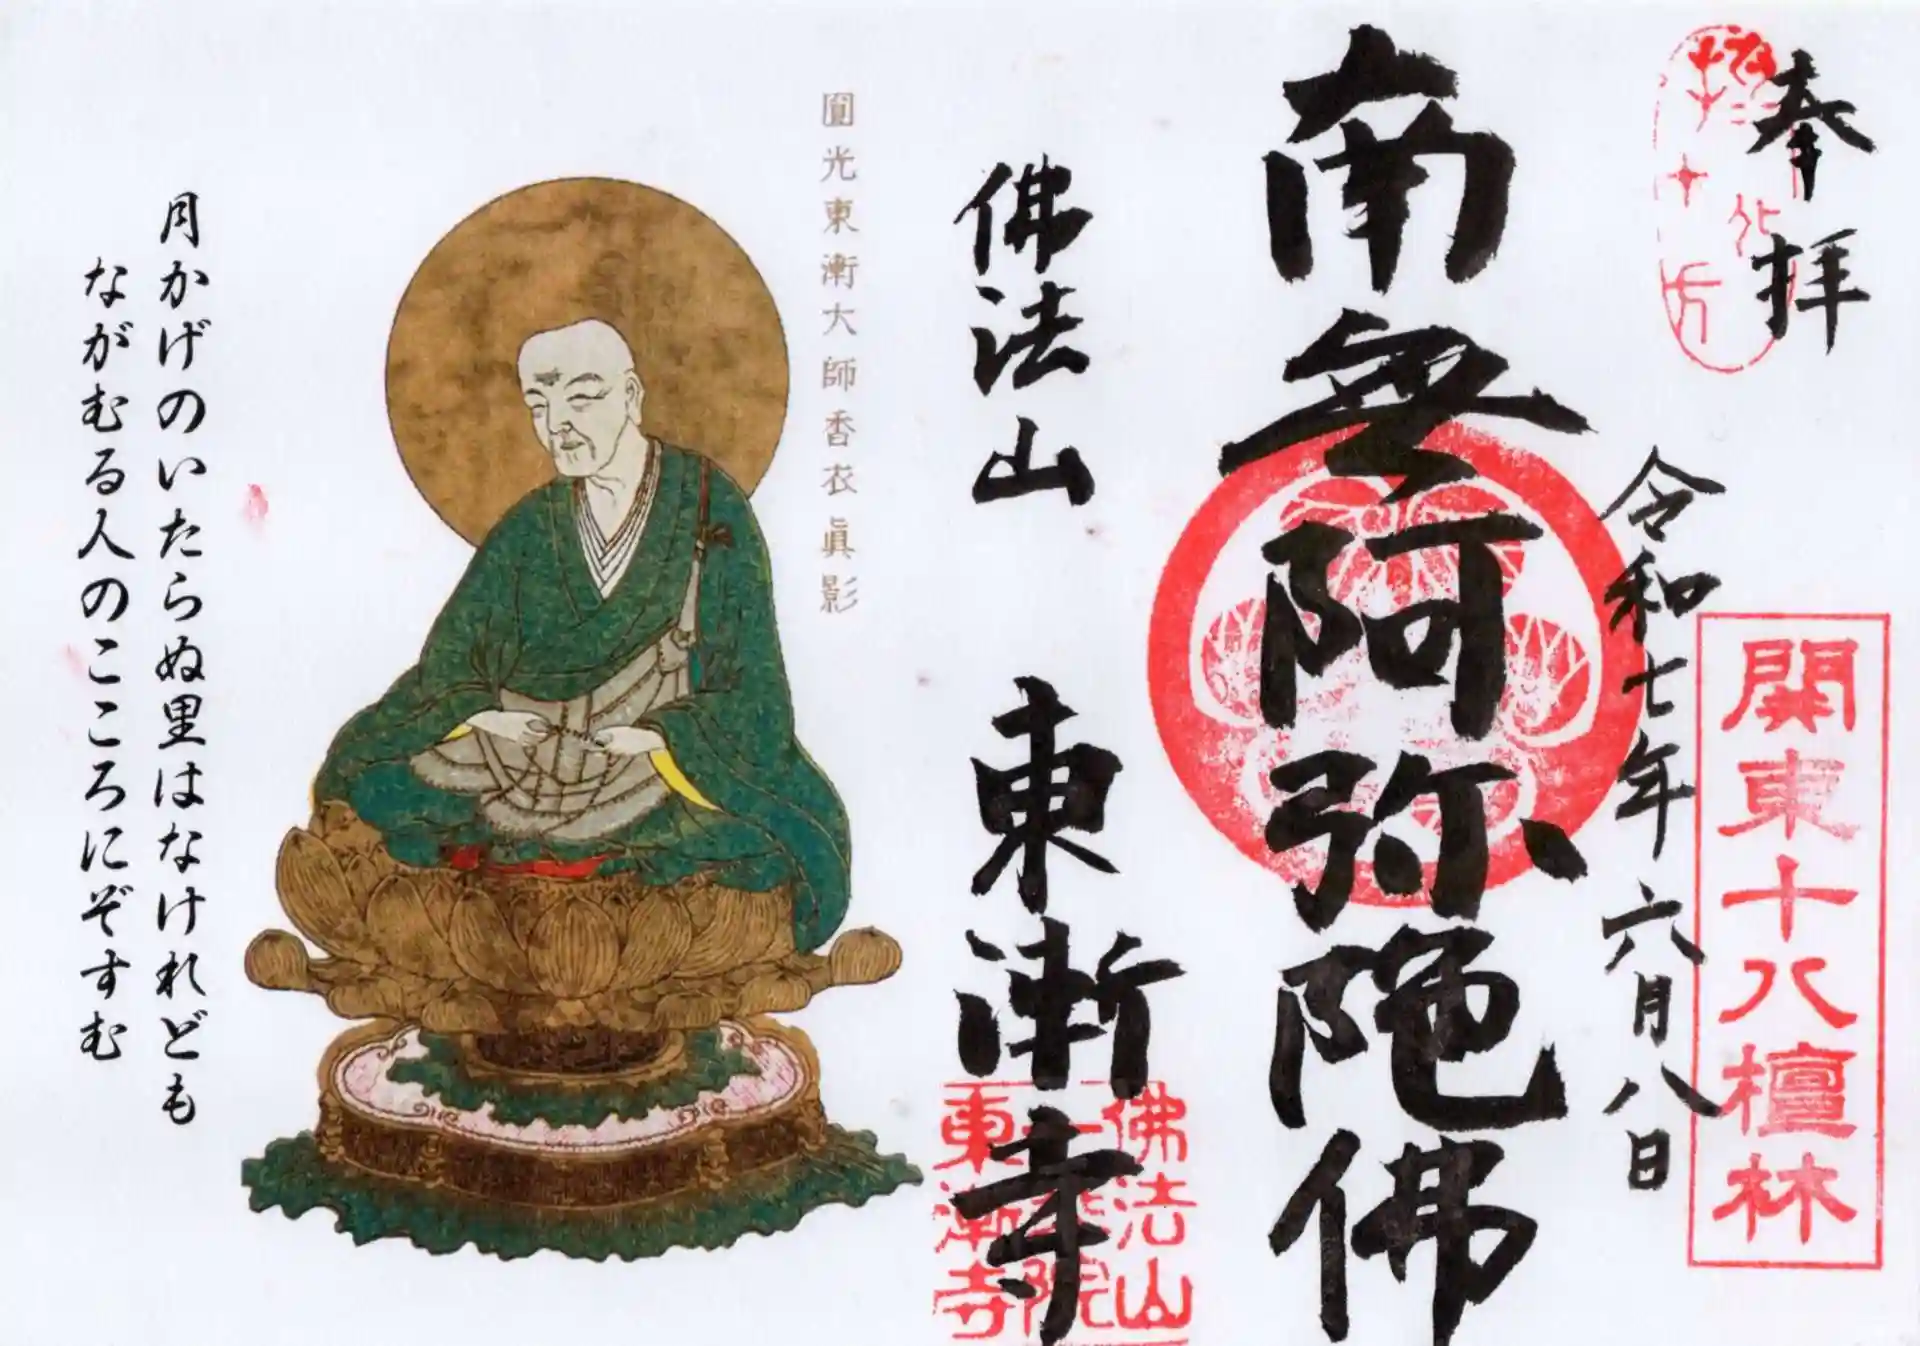 奉拝
令和七年六月八日
關東十八檀林
南無阿弥陀佛
佛法山
東漸寺
佛法山
一乗院
東漸寺
圓光東漸大師香衣眞影
月かげのいたらぬ里はなけれども
ながむる人のこころにぞすむ